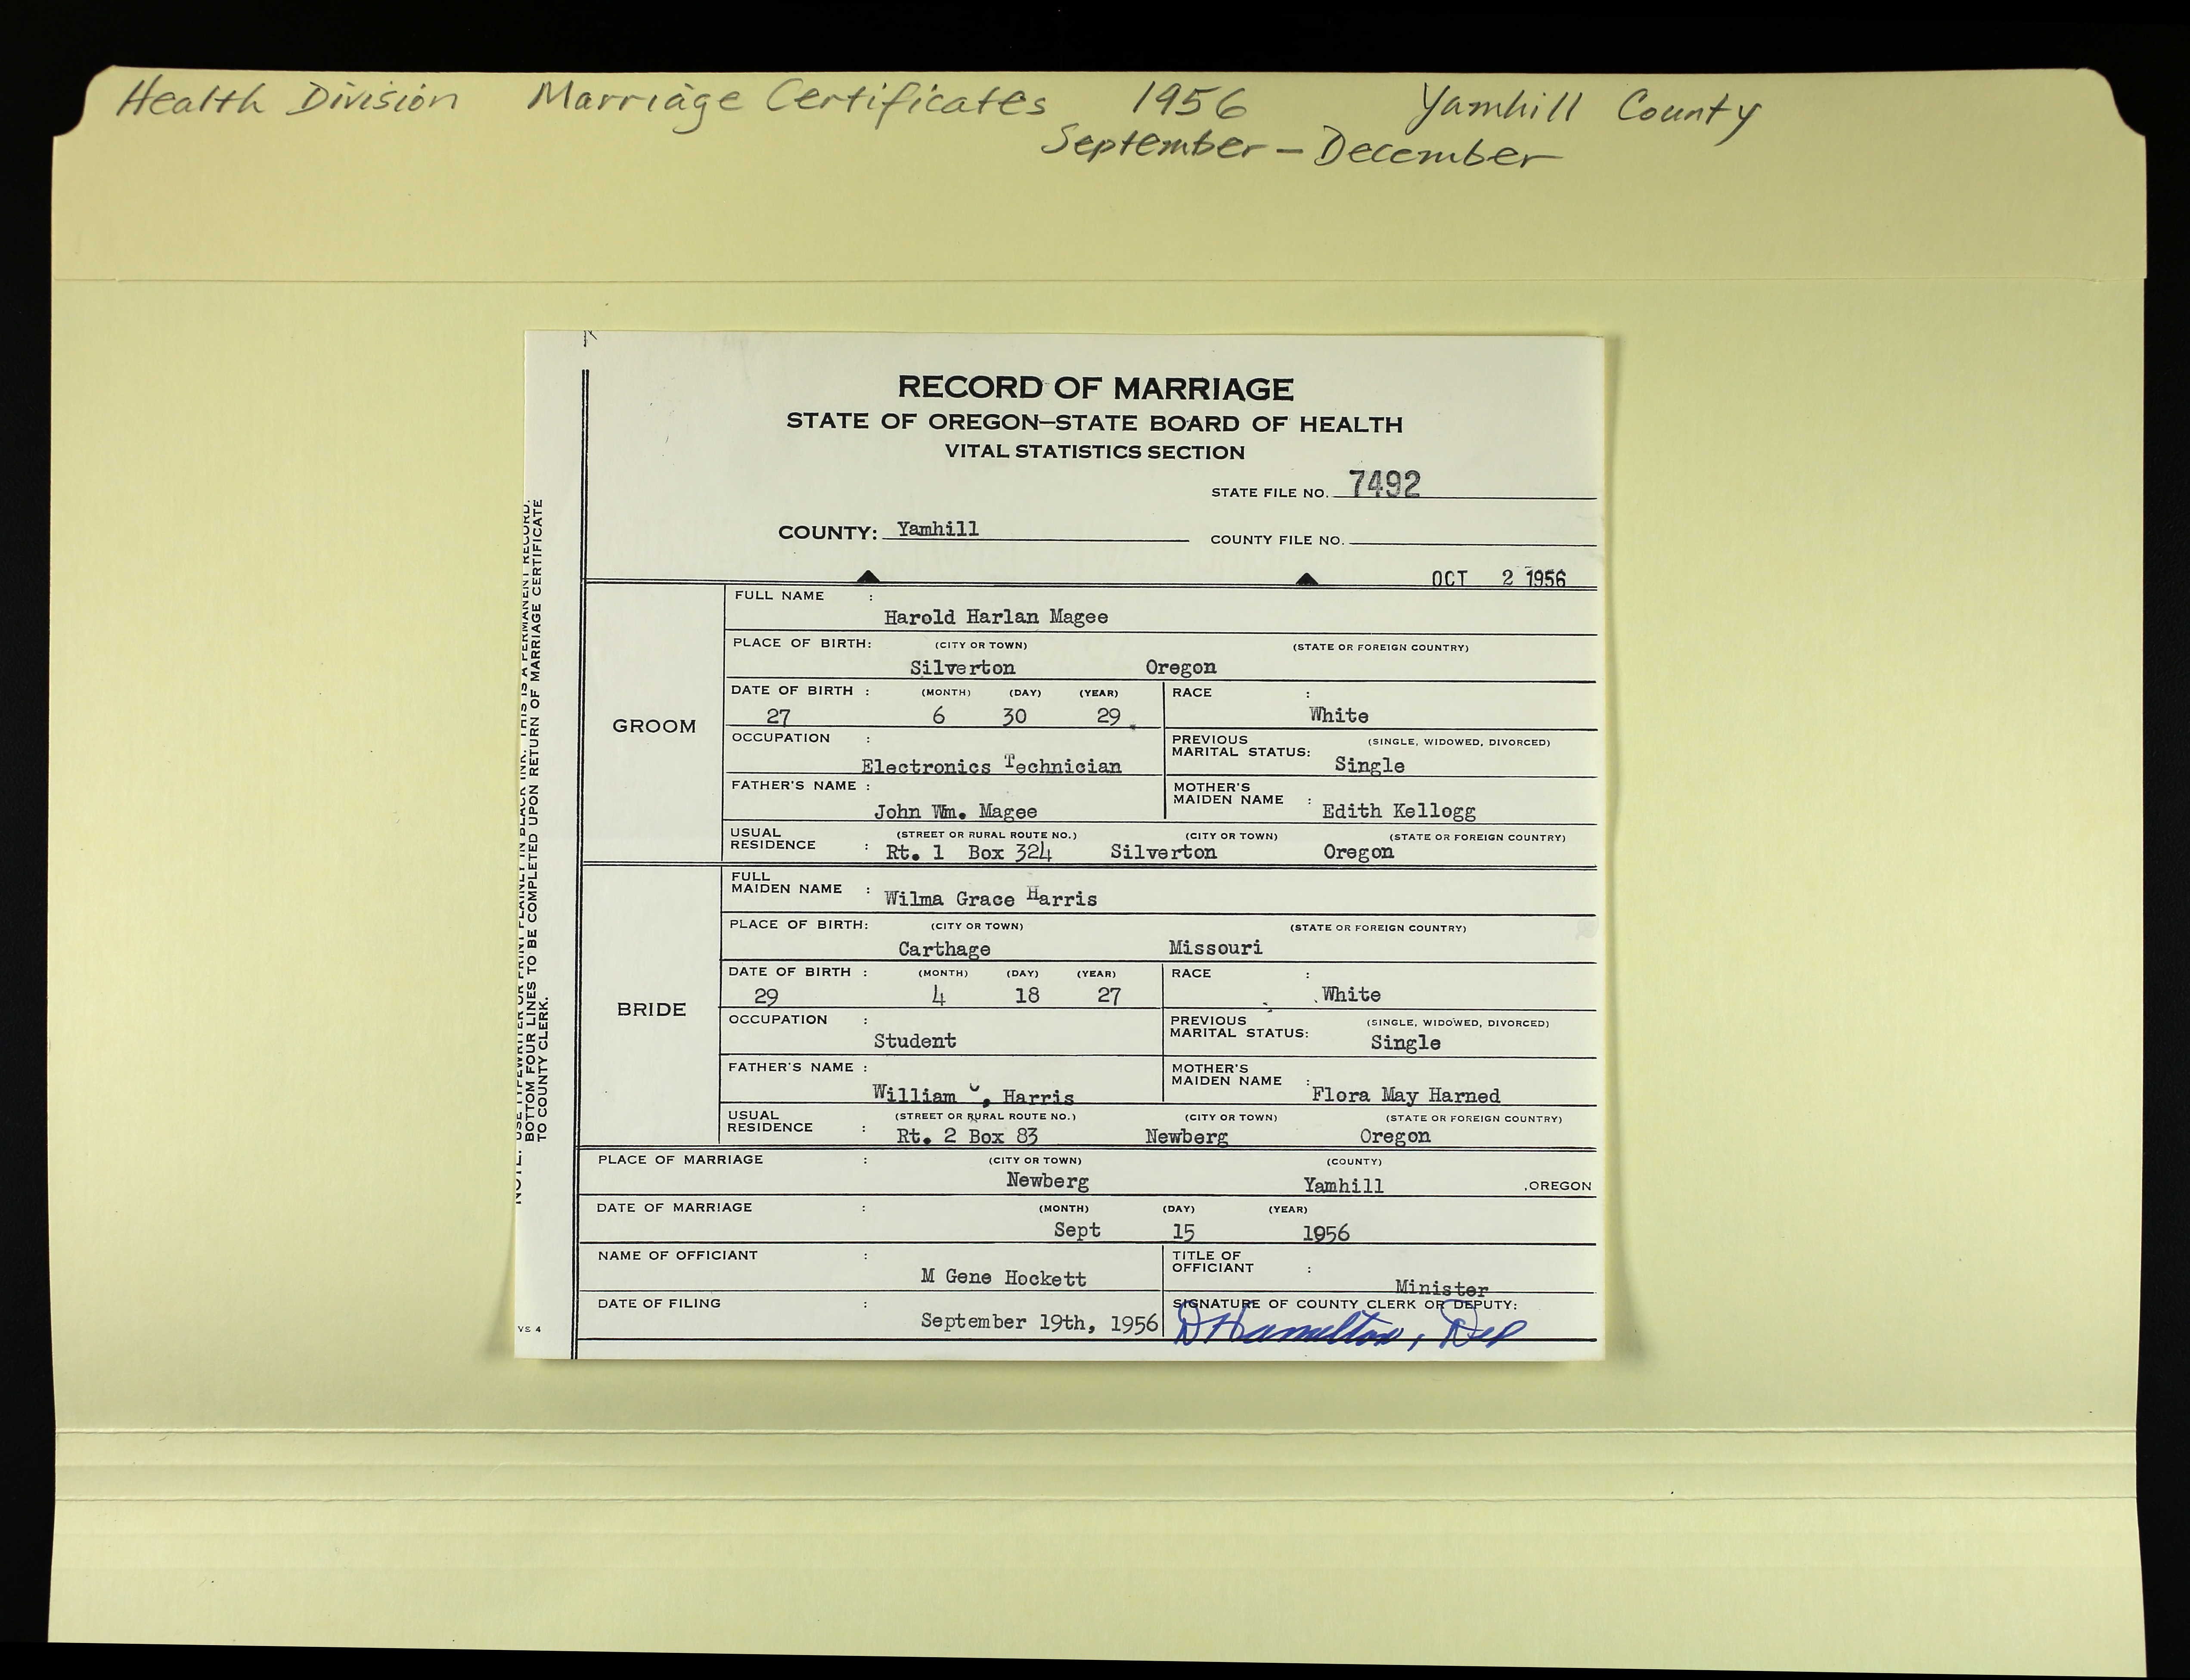 Health Division Marriage Certificates 1956 Yamhill County
September – December
RECORD OF MARRIAGE
STATE OF OREGON—STATE BOARD OF HEALTH
VITAL STATISTICS SECTION
STATE FILE NO. 7492
COUNTY: Yamhill COUNTY FILE NO.
OCT 2 1956
GROOM
FULL NAME :
Harold Harlan Magee
PLACE OF BIRTH: (CITY OR TOWN) (STATE OR FOREIGN COUNTRY)
Silverton Oregon
DATE OF BIRTH : (MONTH) (DAY) (YEAR) RACE :
27 6 30 29 White
OCCUPATION : PREVIOUS MARITAL STATUS: (SINGLE, WIDOWED, DIVORCED)
Electronics Technician Single
FATHER'S NAME : MOTHER'S MAIDEN NAME :
John Wm. Magee Edith Kellogg
USUAL RESIDENCE : (STREET OR RURAL ROUTE NO.) (CITY OR TOWN) (STATE OR FOREIGN COUNTRY)
Rt. 1 Box 324 Silverton Oregon
BRIDE
FULL MAIDEN NAME : Wilma Grace Harris
PLACE OF BIRTH: (CITY OR TOWN) (STATE OR FOREIGN COUNTRY)
Carthage Missouri
DATE OF BIRTH : (MONTH) (DAY) (YEAR) RACE :
29 4 18 27 White
OCCUPATION : PREVIOUS MARITAL STATUS: (SINGLE, WIDOWED, DIVORCED)
Student Single
FATHER'S NAME : MOTHER'S MAIDEN NAME :
William , Harris Flora May Harned
USUAL RESIDENCE : (STREET OR RURAL ROUTE NO.) (CITY OR TOWN) (STATE OR FOREIGN COUNTRY)
Rt. 2 Box 83 Newberg Oregon
PLACE OF MARRIAGE : (CITY OR TOWN) (COUNTY)
Newberg Yamhill ,OREGON
DATE OF MARRIAGE : (MONTH) (DAY) (YEAR)
Sept 15 1956
NAME OF OFFICIANT : TITLE OF OFFICIANT :
M Gene Hockett Minister
DATE OF FILING : SIGNATURE OF COUNTY CLERK OR DEPUTY:
September 19th, 1956 D Hamilton, Dep
VS 4
NOTE: USE TYPEWRITER OR PRINT PLAINLY IN BLACK INK. THIS IS A PERMANENT RECORD.
BOTTOM FOUR LINES TO BE COMPLETED UPON RETURN OF MARRIAGE CERTIFICATE
TO COUNTY CLERK.